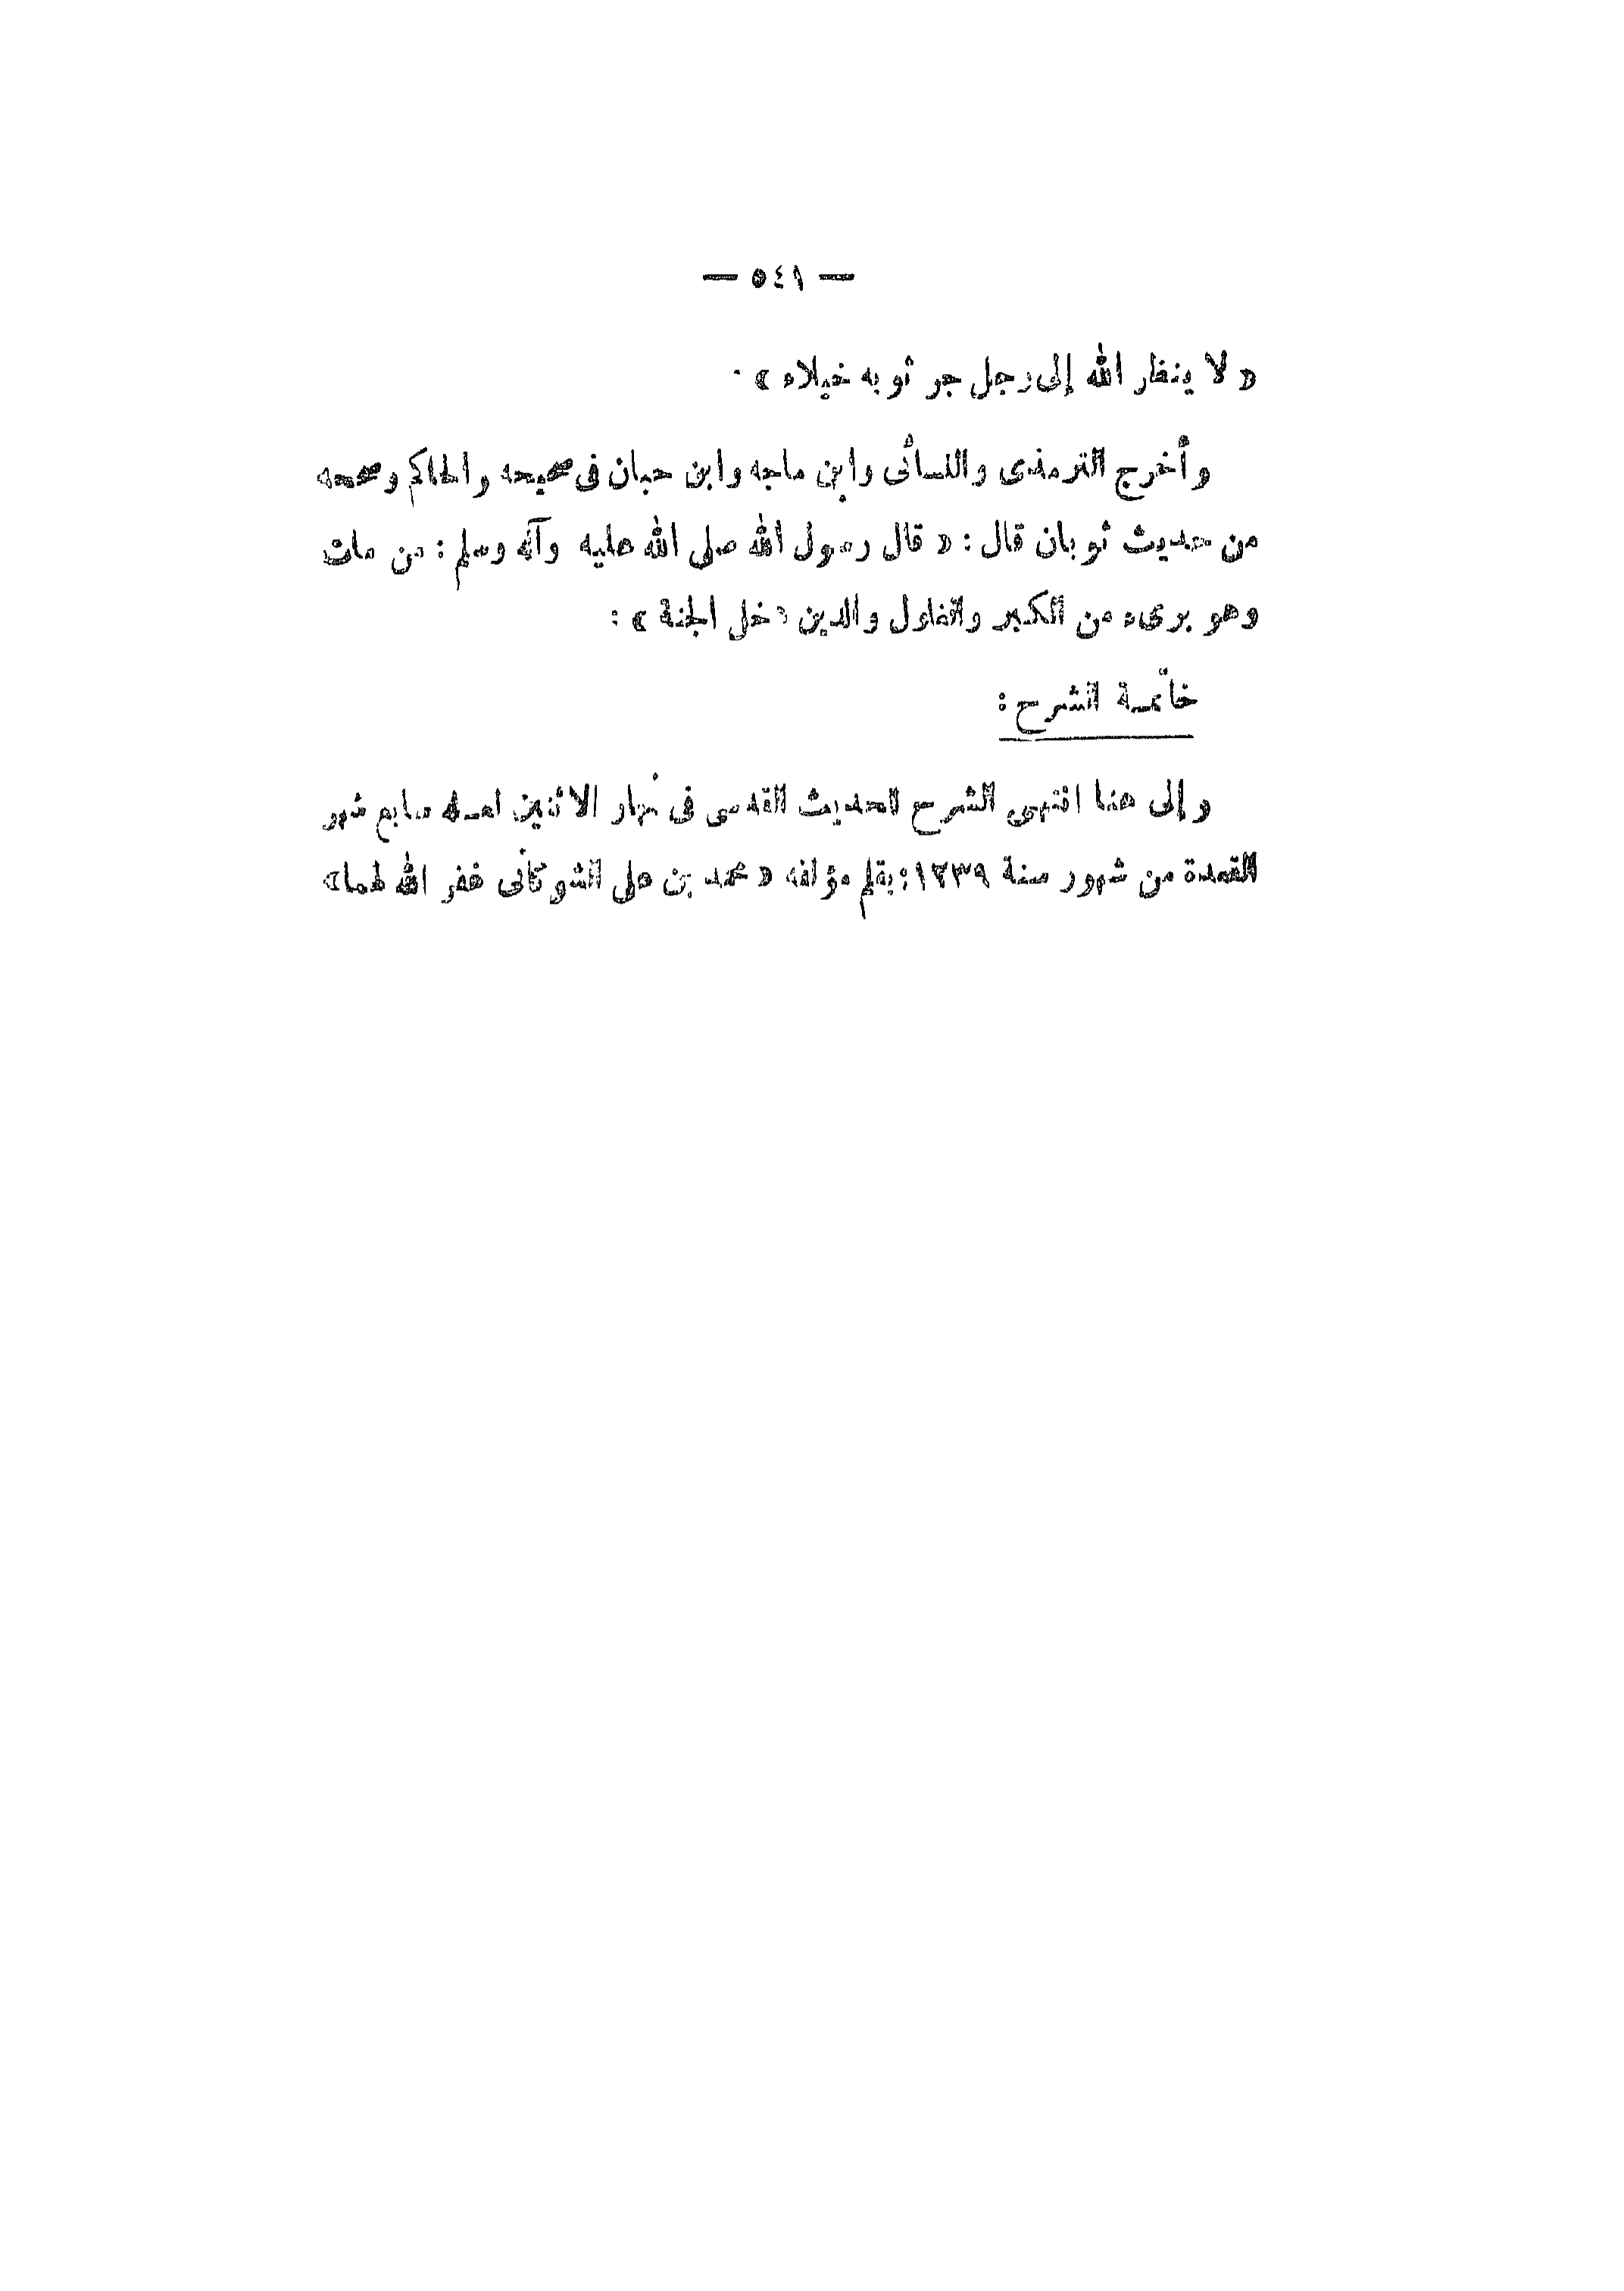 — ٥٤١ —
« لا ينظر الله إلى رجل جر ثوبه خيلاء » .
وأخرج الترمذى والنسائى وابن ماجه وابن حبان فى صحيحه والحاكم وصححه
من حديث ثوبان قال : « قال رسول الله صلى الله عليه وآله وسلم : من مات
وهو برىء من الكبر والغلول والدين دخل الجنة » :
خاتمة الشرح :
وإلى هنا انتهى الشرح للحديث القدسى فى نهار الاثنين لعله سابع شهر
القعدة من شهور سنة ١٢٣٩ : بقلم مؤلفه « محمد بن على الشوكانى غفر الله لهما »